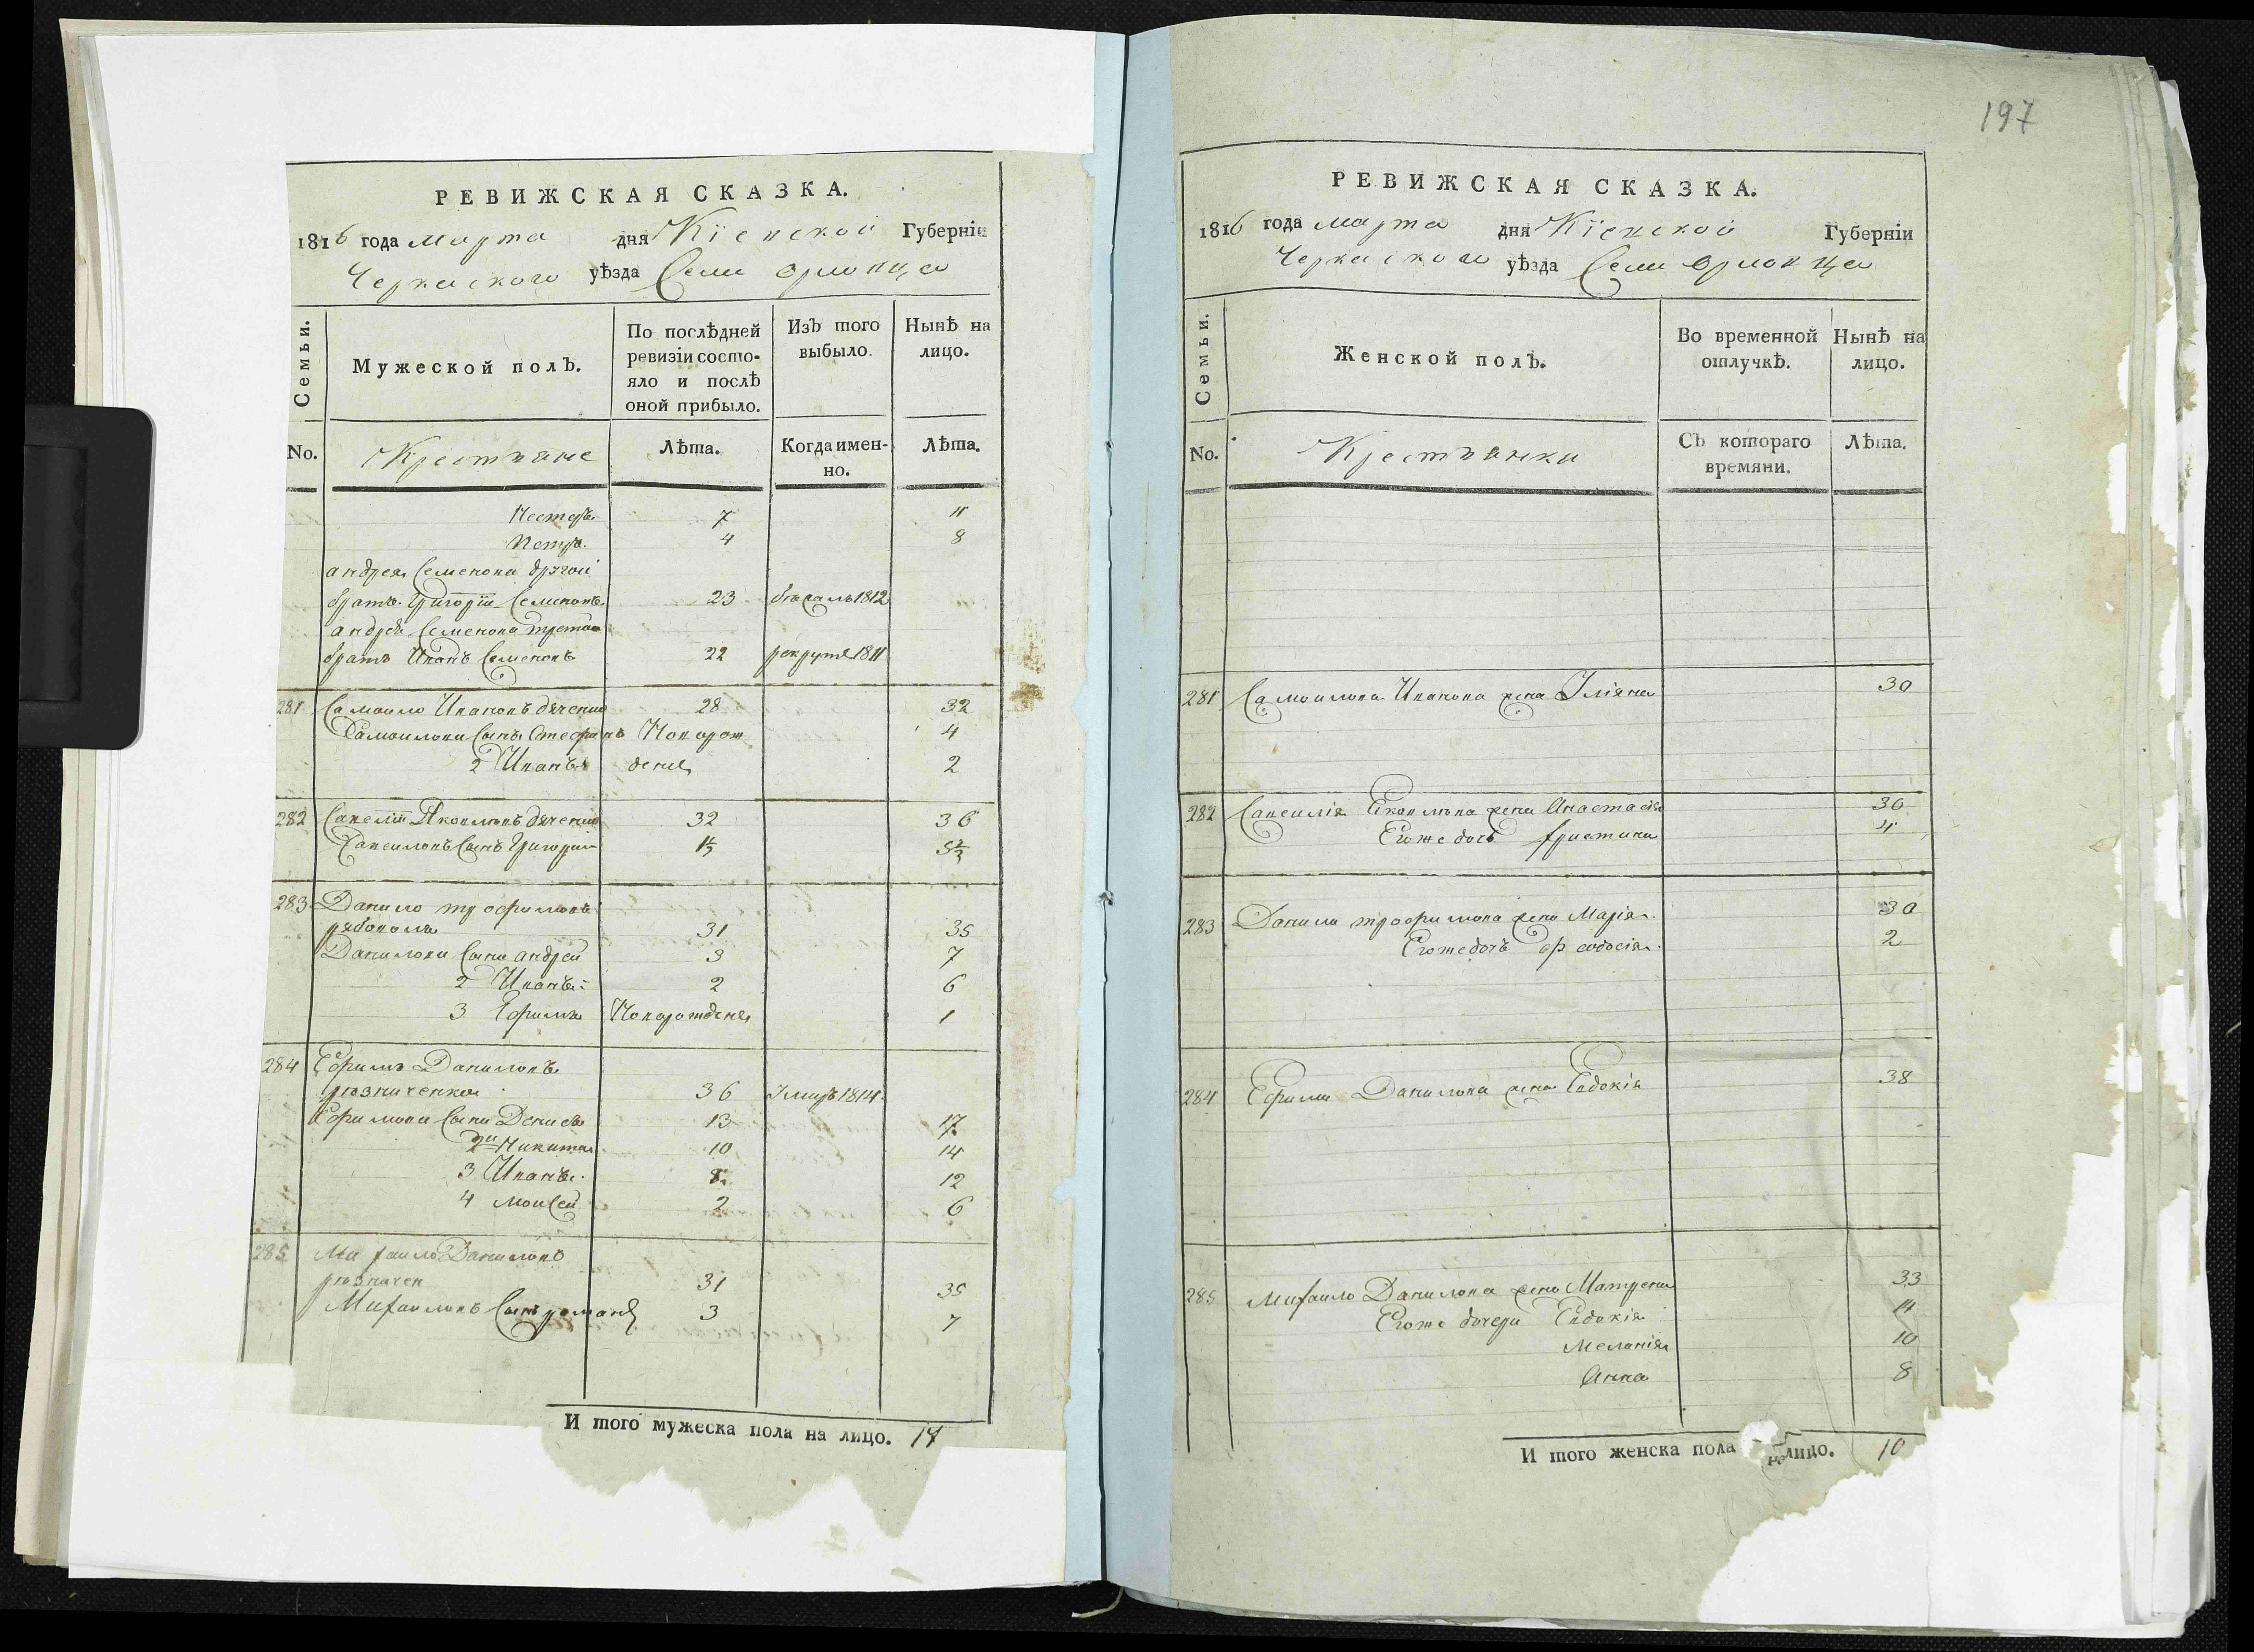 РЕВИЖСКАЯ СКАЗКА.
1816 года марта дня Кіевской Губерніи
Черкаского уѣзда Села Орловца
Семьи.
Мужеской полъ.
По послѣдней ревизіи состояло и послѣ оной прибыло.
Изъ того выбыло.
Нынѣ на лицо.
No.
Крестьяне
Лѣта.
Когда именно.
Лѣта.
Нестеръ 7 11
Петръ 4 8
андрея Семенова другой
братъ Григорій Семеновъ 23 бѣжалъ 1812
андрея Семенова третій
братъ Иванъ Семеновъ 22 рекрутъ 1811
281 Самоило Ивановъ дяченко 28 32
Самоилови сынъ Стефанъ Новорож 4
2 Иванъ дення 2
282 Савелій Яковлевъ дяченко 32 36
Савеиловъ Сынъ Григорій 1½ 5½
283 Данило трофимовъ
рябоволъ 31 35
Данилови Сыни андрей 3 7
2 Иванъ 2 6
3 Ефимъ Новорожденя 1
284 Ефимъ Даниловъ
рѣзниченко 36 Умеръ 1814
Ефимови Сыни Денисъ 13 17
2й Никита 10 14
3 Иванъ 8 12
4 Моисей 2 6
285 Михаило Даниловъ
рѣзничен 31 35
Михаиловъ Сынъ романъ 3 7
И того мужеска пола на лицо. 17
197
РЕВИЖСКАЯ СКАЗКА.
1816 года марта дня Кіевской Губерніи
Черкаского уѣзда Села Орловца
Семьи.
Женской полъ.
Во временной отлучкѣ.
Нынѣ на лицо.
No.
Крестьянки
Съ котораго времяни.
Лѣта.
281 Самоилова Иванова жена Уліяна 30
282 Савеилія Яковлева жена Анастасія 30
Егоже дочь Христина 4
283 Данила трофимова жена Марія 30
Егоже дочь феодосія 2
284 Ефима Данилова жена Евдокія 38
285 Михаило Данилова жена Матрена 33
Егоже дочери Евдокія 14
Меланія 10
Анна 8
И того женска пола на лицо. 10